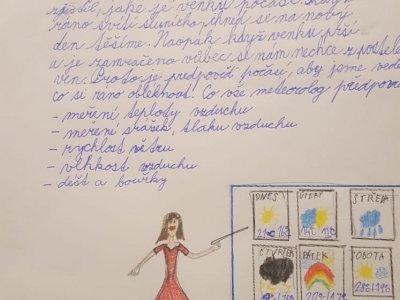 zjistil, jaké je venku počasí. Když
ráno svítí sluníčko, hned se na nový
den těšíme. Naopak když venku prší
a je zamračeno vůbec se nám nechce z postele
ven. Proto je předpověď počasí, aby jsme vědě
co si ráno obléknout! Co vše meteorolog předpoví
- měření teploty vzduchu
- měření srážek, tlaku vzduchu
- rychlost větru
- vlhkost vzduchu
- déšť a bouřky
DNES
ÚTERÝ
STŘEDA
ČTVRTEK
PÁTEK
SOBOTA